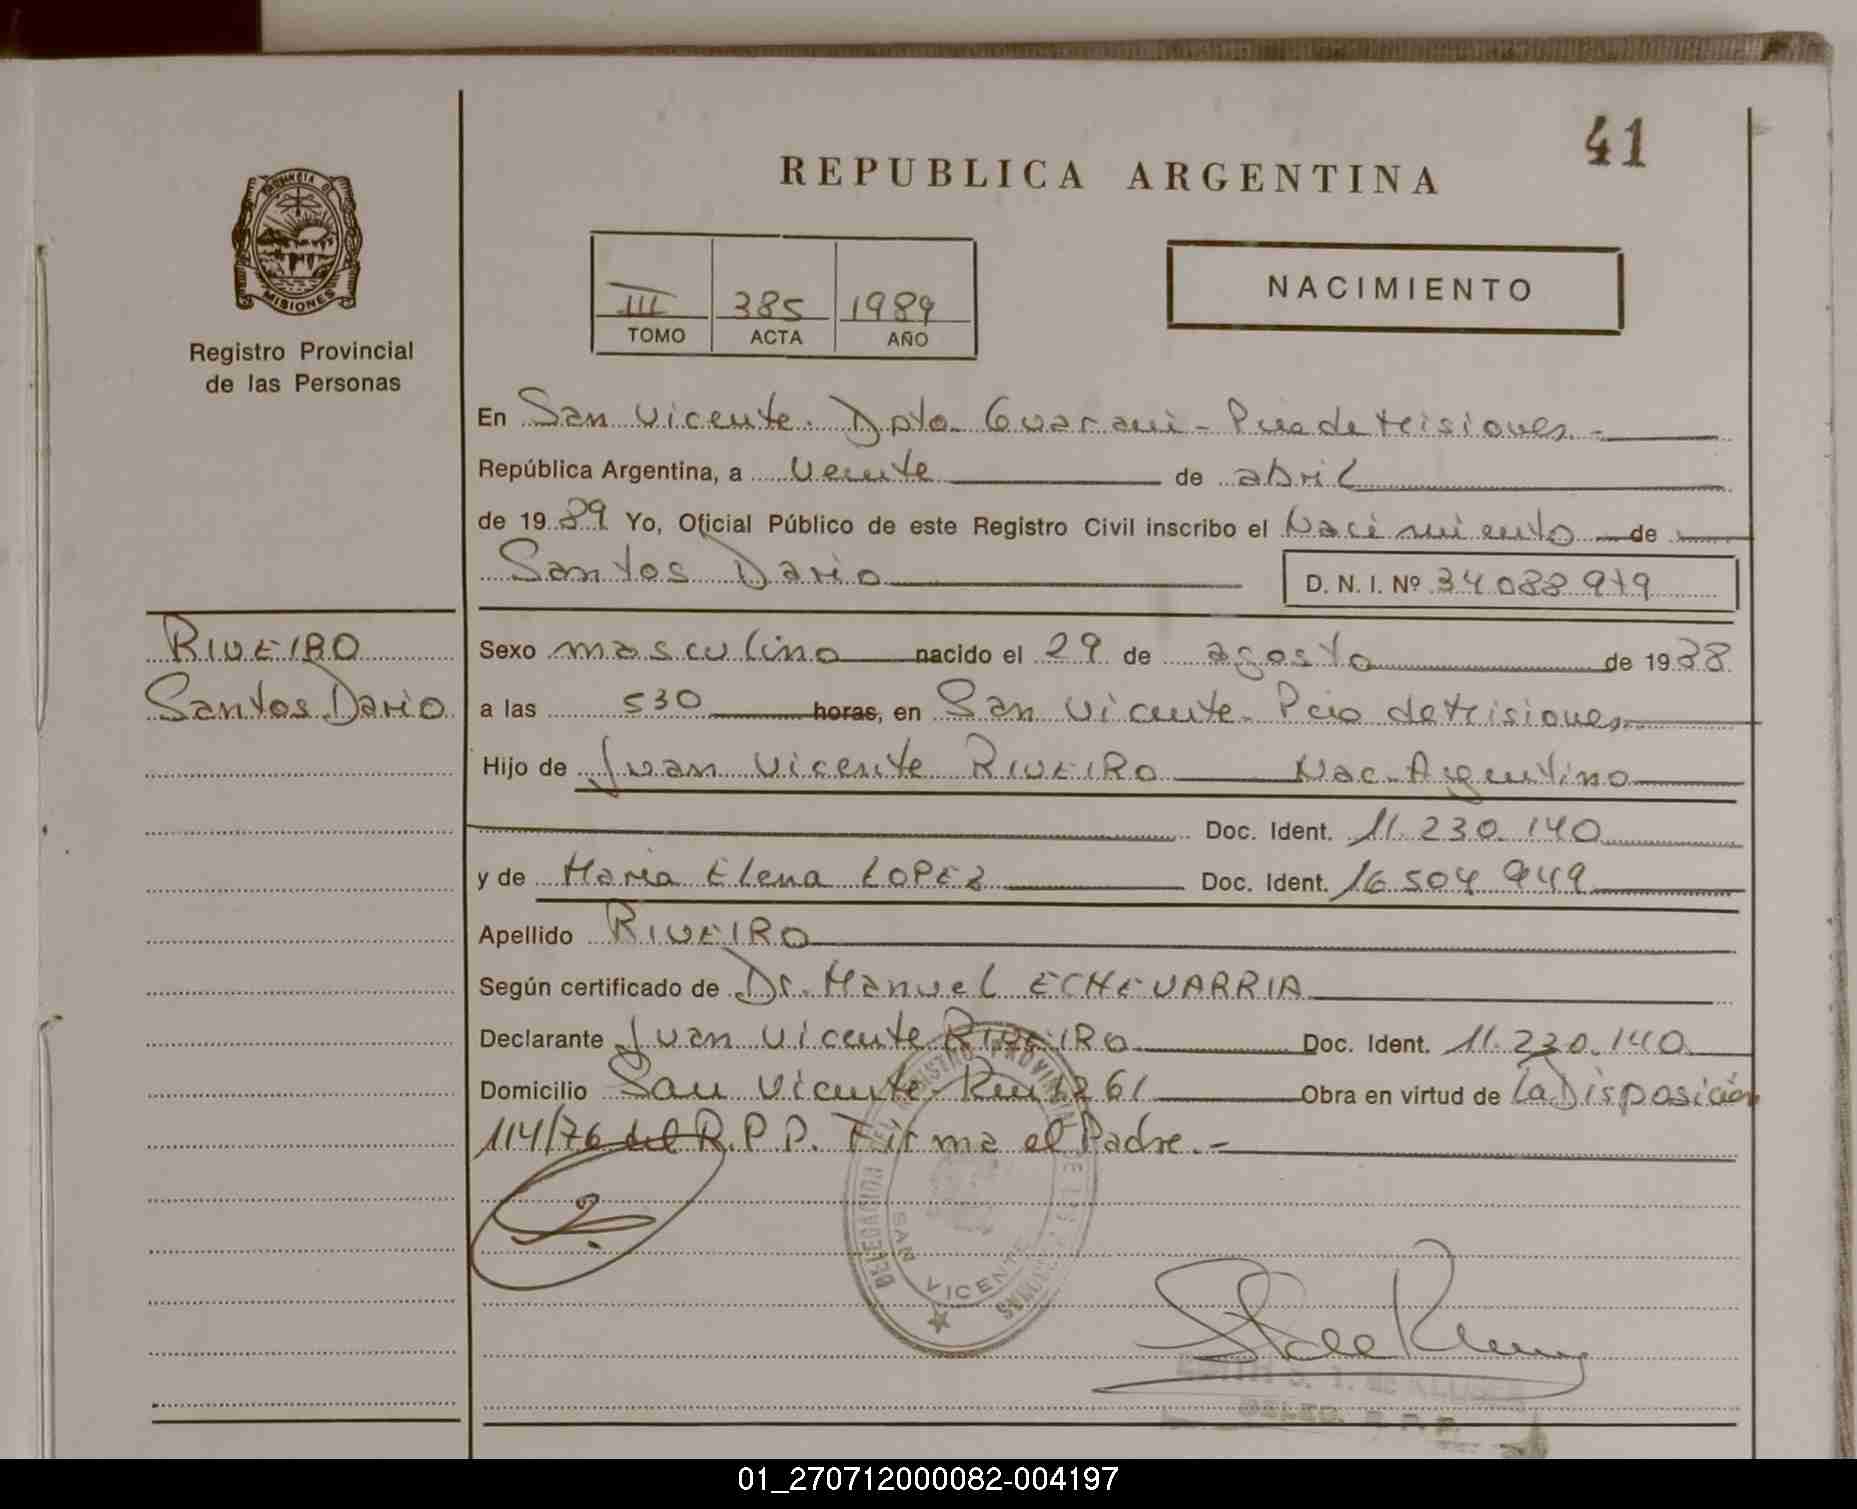 41
REPUBLICA ARGENTINA
PROVINCIA DE
MISIONES
Registro Provincial
de las Personas
III 385 1989
TOMO ACTA AÑO
NACIMIENTO
En San Vicente. Dpto. Guarani - Pcia de Misiones.-
República Argentina, a Veinte de abril
de 1989 Yo, Oficial Público de este Registro Civil inscribo el Nacimiento de
Santos Dario D. N. I. Nº 34 088 979
RIVEIRO
Santos Dario
Sexo masculino nacido el 29 de agosto de 1988
a las 530 horas, en San Vicente - Pcia de Misiones
Hijo de Juan Vicente RIVEIRO Nac. Argentino
Doc. Ident. 11.230.140
y de Maria Elena LOPEZ Doc. Ident. 16 504 949
Apellido RIVEIRO
Según certificado de Dr. Manuel ECHEVARRIA
Declarante Juan Vicente RIVEIRO Doc. Ident. 11.230.140
Domicilio San Vicente - Km 1261 Obra en virtud de La Disposición
114/76 del R.P.P. Firma el Padre.-
DELEGACION DEL REGISTRO PROVINCIAL DE LAS PERSONAS
SAN VICENTE
01_270712000082-004197